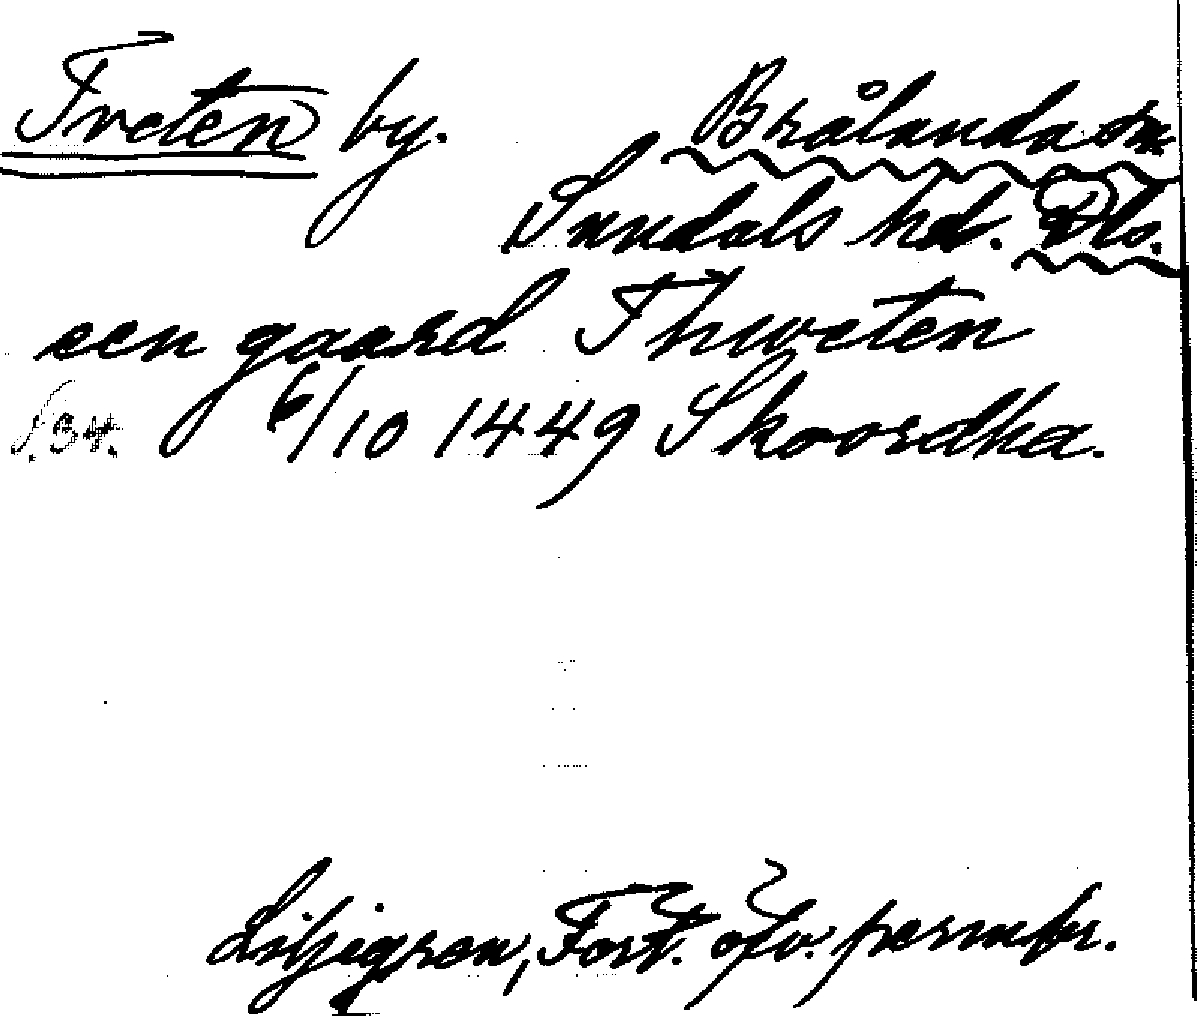 Tveten by. Brålanda sn
Sundals hd. Dls.
een gaard Thweten
S. 34. 6/10 1449 Skoordha.
Liljegren, Fort. öfv. permbr.